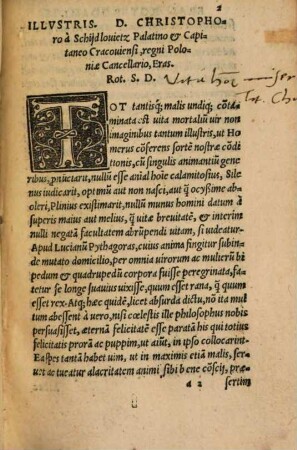 2
ILLVSTRIS. D. CHRISTOPHO-
ro à Schijdlouietz Palatino & Capi
taneo Cracouiensi, regni Polo-
niæ Cancellario, Eras.
Rot. S. D.
TOT tantisq; malis undiq; cōta
minata est uita mortaliū uir non
imaginibus tantum illustris, ut Ho
merus cōferens sortē nostræ cōdi
tionis, cū singulis animantiū gene
ribus, pnūciarit, nullū esse aīal hoīe calamitosius, Sile
nus iudicarit, optimū aut non nasci, aut q̃ ocyssime ab-
oleri, Plinius existimarit, nullū munus homini datum à
superis maius aut melius, q̃ uitæ breuitatē, & interim
nulli negatā facultatem abrūpendi uitam, si uideatur.
Apud Lucianū Pythagoras, cuius anima fingitur subin-
de mutato domicilio, per omnia uirorum ac mulierū bi
pedum & quadrupedū corpora fuisse peregrinata, fa-
tetur se longe suauius uixisse, quum esset rana, q̃ quum
esset rex. Atq; hæc quidē, licet absurda dictu, nō ita mul
tum abessent à uero, nisi cœlestis ille philosophus nobis
persuasisset, æternā felicitatē esse paratā his qui totius
felicitatis proræ ac puppim, ut aiūt, in ipso collocarint.
Ea spes tantā habet uim, ut in maximis etiā malis, fer-
uet ac tueatur alacritatem animi sibi bene cōscij, præ-
a 2 sertim